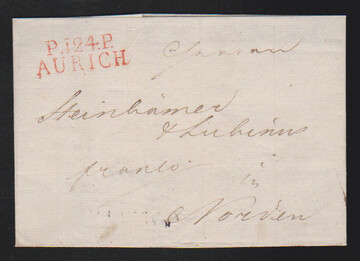 P.124.P.
AURICH
Herren
Steinbömer
& Lubinus
franco
in
Norden